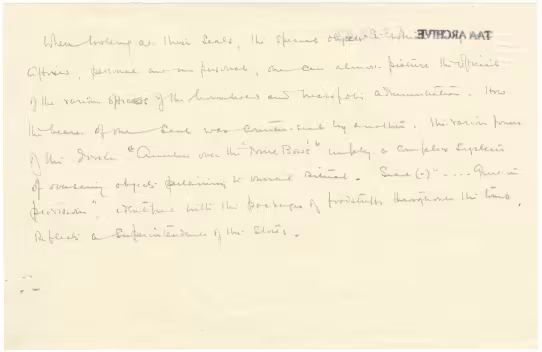 TAA ARCHIVE
When looking at these seals, the special objects to which they
affixed, personal and non personal, one can almost picture the officials
of the various offices of the household and necropolis administration. How
the bearer of one seal was counter-sealed by another. The various forms
of the device "Anubis over the Nine Bows" imply a complex system
of overseeing objects pertaining to burial ritual. Seal (-) ".... Great in
provisions", with the packages of foodstuffs throughout the tomb,
reflects a Superintendence of the Stores.